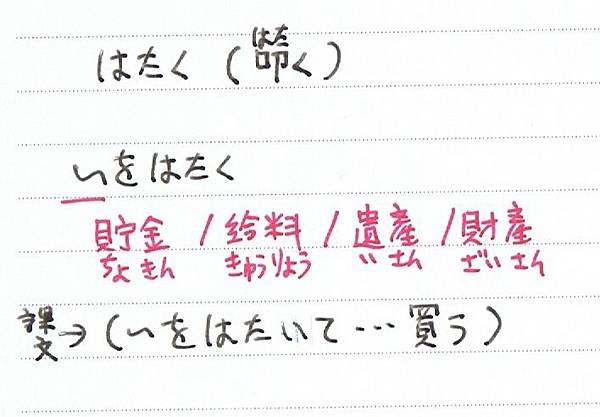 はた
はたく (叩く)
〜をはたく
貯金 / 給料 / 遺産 / 財産
ちょきん きゅうりょう いさん ざいさん
課文→(〜をはたいて…買う)